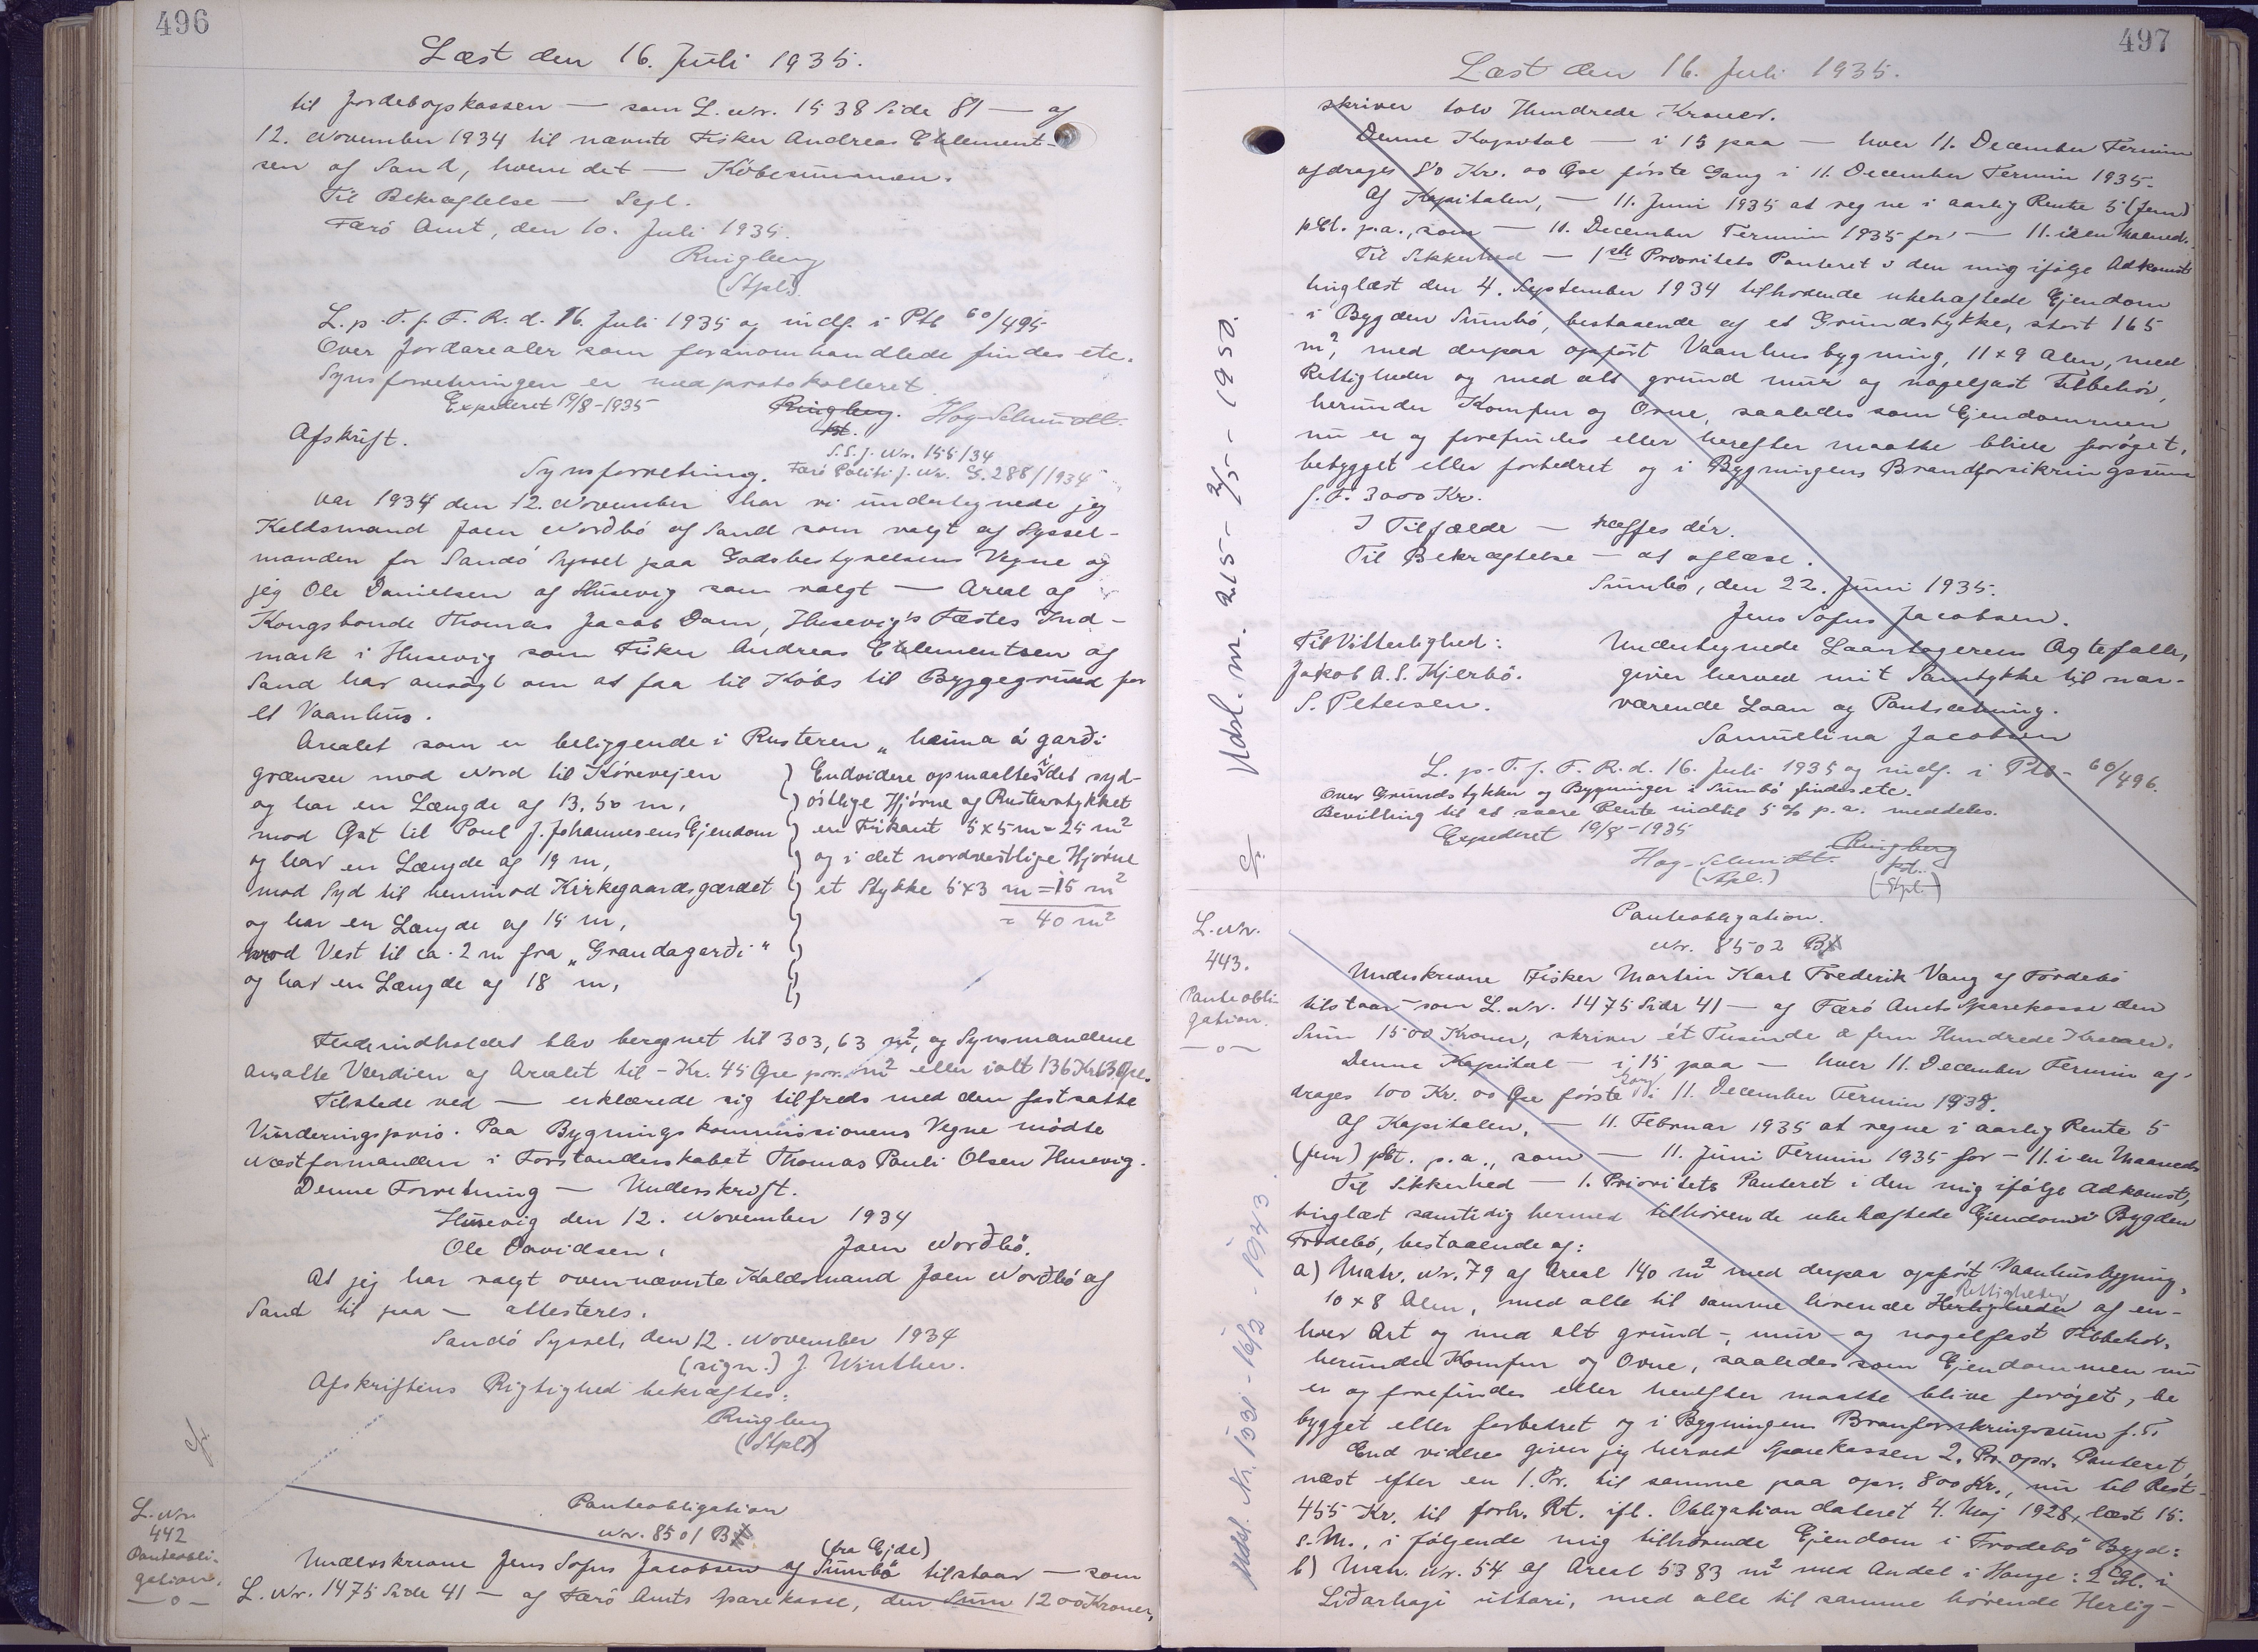 496
Læst den 16. Juli 1935.
til Jordebogskassen — som L. Nr. 1538 Side 81 — og
12. November 1934 til nævnte Fisker Andreas Clement-
sen af Sand, hvem det — Köbesummen.
Til Bekræftelse — Segl.
Færö Amt, den 10. Juli 1935.
Ringberg
(Stpl.)
L. p. T. f. F. R. d. 16. Juli 1935 og indf. i Ptb 60/495
Over Jordarealer som foranomhandlede findes etc.
Synsforretningen er medprotokolleret
Expederet 19/8-1935 Ringberg. Høg-Schmidt.
fst.
Afskrift.
S.S. J. Nr. 155/34
Synsforretning. Færö Politi J. Nr. G. 288/1934
Aar 1934 den 12. November har vi undertegnede jeg
Keldsmand Joen Norðbö af Sand som valgt af Syssel-
manden for Sandö Syssel paa Godsbestyrelsens Vegne og
jeg Ole Danielsen af Husevig som valgt — Areal af
Kongsbonde Thomas Jacob Dam, Husevig's Fæstes Ind-
mark i Husevig som Fisker Andreas Clementsen af
Sand har ansögt om at faa til Köbs til Byggegrund for
et Vaanhus.
Arealet som er beliggende i Rusteren „heima á garði
grænser mod Nord til Körevejen
og har en Længde af 13,50 m,
mod Øst til Poul J. Johannesens Ejendom
og har en Længde af 19 m,
mod Syd til henimod Kirkegaardsgærdet
og har en Længde af 15 m,
mod Vest til ca. 2 m fra „Grandagarði“
og har en Længde af 18 m,
Endvidere opmaaltes i det syd-
östlige Hjörne af Rusterstykket
en Firkant 5×5 m = 25 m²
og i det nordvestlige Hjörne
et Stykke 5×3 m = 15 m²
= 40 m²
Fladeindholdet blev beregnet til 303,63 m², og Synsmændene
ansatte Værdien af Arealet til - Kr. 45 Øre pr. m² eller ialt 136 Kr. 63 Øre.
Tilstede ved — erklærede sig tilfreds med den fastsatte
Vurderingspris. Paa Bygningskommissionens Vegne mödte
Næstformanden i Forstanderskabet Thomas Pauli Olsen Husevig.
Denne Forretning — Underskrift.
Husevig den 12. November 1934
Ole Davidsen, Joen Norðbö.
At jeg har valgt ovennævnte Kaldsmand Joen Norðbö af
Sand til paa — attesteres.
Sandö Syssel, den 12. November 1934
(sign.) J. Winther.
Afskriftens Rigtighed bekræftes:
Ringberg
(Stpl.)
L. Nr.
442
Panteobli-
gation.
—o—
Panteobligation
Nr. 8501 B
(fra Ejde)
Underskrevne Jens Sofus Jacobsen af Sumbö tilstaar — som
L. Nr. 1475 Side 41 — af Færö Amts Sparekasse, den Sum 1200 Kroner,
497
Læst den 16. Juli 1935.
skriver tolv Hundrede Kroner.
Denne Kapital — i 15 paa — hver 11. December Termin
afdrages 80 Kr. 00 Øre förste Gang i 11. December Termin 1935.
Af Kapitalen, — 11. Juni 1935 at regne i aarlig Rente 5 (fem)
pCt. p.a., som — 11. December Termin 1935 for — 11. i en Maaned.
Til Sikkerhed — 1ste Prioritets Panteret i den mig ifölge Adkomst
tinglæst den 4. September 1934 tilhörende ubehæftede Ejendom
i Bygden Sumbö, bestaaende af et Grundstykke, stort 165
m², med derpaa opfört Vaanhusbygning, 11×9 Alen, med
Rettigheder og med alt grund mur og nagelfast Tilbehör,
herunder Komfur og Ovne, saaledes som Ejendommen
nu er og forefindes eller herefter maatte blive foröget,
bebygget eller forbedret og i Bygningens Brandforsikringssum
f. T. 3000 Kr.
I Tilfælde — træffes dér.
Til Bekræftelse — at aflæse.
Sumbö, den 22. Juni 1935.
Jens Sofus Jacobsen.
Til Vitterlighed:
Jakob A. S. Kjerbö.
S. Petersen.
Undertegnede Laantagerens Ægtefælle,
giver herved mit Samtykke til nær-
værende Laan og Pantsætning.
Samuelina Jacobsen
L. p. T. f. F. R. d. 16. Juli 1935 og indf. i Ptb- 60/496.
Over Grundstykker og Bygninger i Sumbö findes etc.
Bevilling til at svare Rente indtil 5% p.a. meddeles.
Expederet 19/8-1935
Høg-Schmidt. Ringberg
(Stpl.) fst.
(Stpl.)
Udsl. nr. 215 - 2/5 - 1950.
L. Nr.
443.
Panteobli-
gation.
—o—
Panteobligation.
Nr. 8502 B
Underskrevne Fisker Martin Karl Frederik Vang af Frodebö
tilstaar - som L. Nr. 1475 Side 41 — af Færö Amts Sparekasse den
Sum 1500 Kroner, skriver ét Tusinde & fem Hundrede Kroner.
Denne Kapital — i 15 paa — hver 11. December Termin af-
drages 100 Kr. 00 Øre förste Gang i 11. December Termin 1938.
Af Kapitalen, — 11. Februar 1935 at regne i aarlig Rente 5
(fem) pCt. p.a., som — 11. Juni Termin 1935 for — 11. i en Maaned.
Til Sikkerhed — 1. Prioritets Panteret i den mig ifölge Adkomst,
tinglæst samtidig hermed tilhörende ubehæftede Ejendom i Bygden
Frodebö, bestaaende af:
a) Matr. Nr. 79 af Areal 140 m² med derpaa opfört Vaanhusbygning,
Rettigheder
10×8 Alen, med alle til samme hörende Herligheder af en-
hver Art og med alt grund-, mur- og nagelfast Tilbehör,
herunder Komfur og Ovne, saaledes som Ejendommen nu
er og forefindes eller herefter maatte blive foröget, be
bygget eller forbedret og i Bygningens Branforsikringssum f. T.
End videre giver jeg herved Sparekassen 2. Pr. opr. Panteret,
næst efter en 1. Pr. til samme paa opr. 800 Kr., nu til Rest-
455 Kr. til forh. Rt. ifl. Obligation dateret 4. Maj 1928, læst 15.
s.M., i fölgende mig tilhörende Ejendom i Frodebö Bygd:
b) Matr. Nr. 54 af Areal 5383 m² med Andel i Hauge: 2 Gl. i
Liðarhagi uttari, med alle til samme hörende Herlig-
Udsl. Nr. 1531 - 16/2 - 1943.